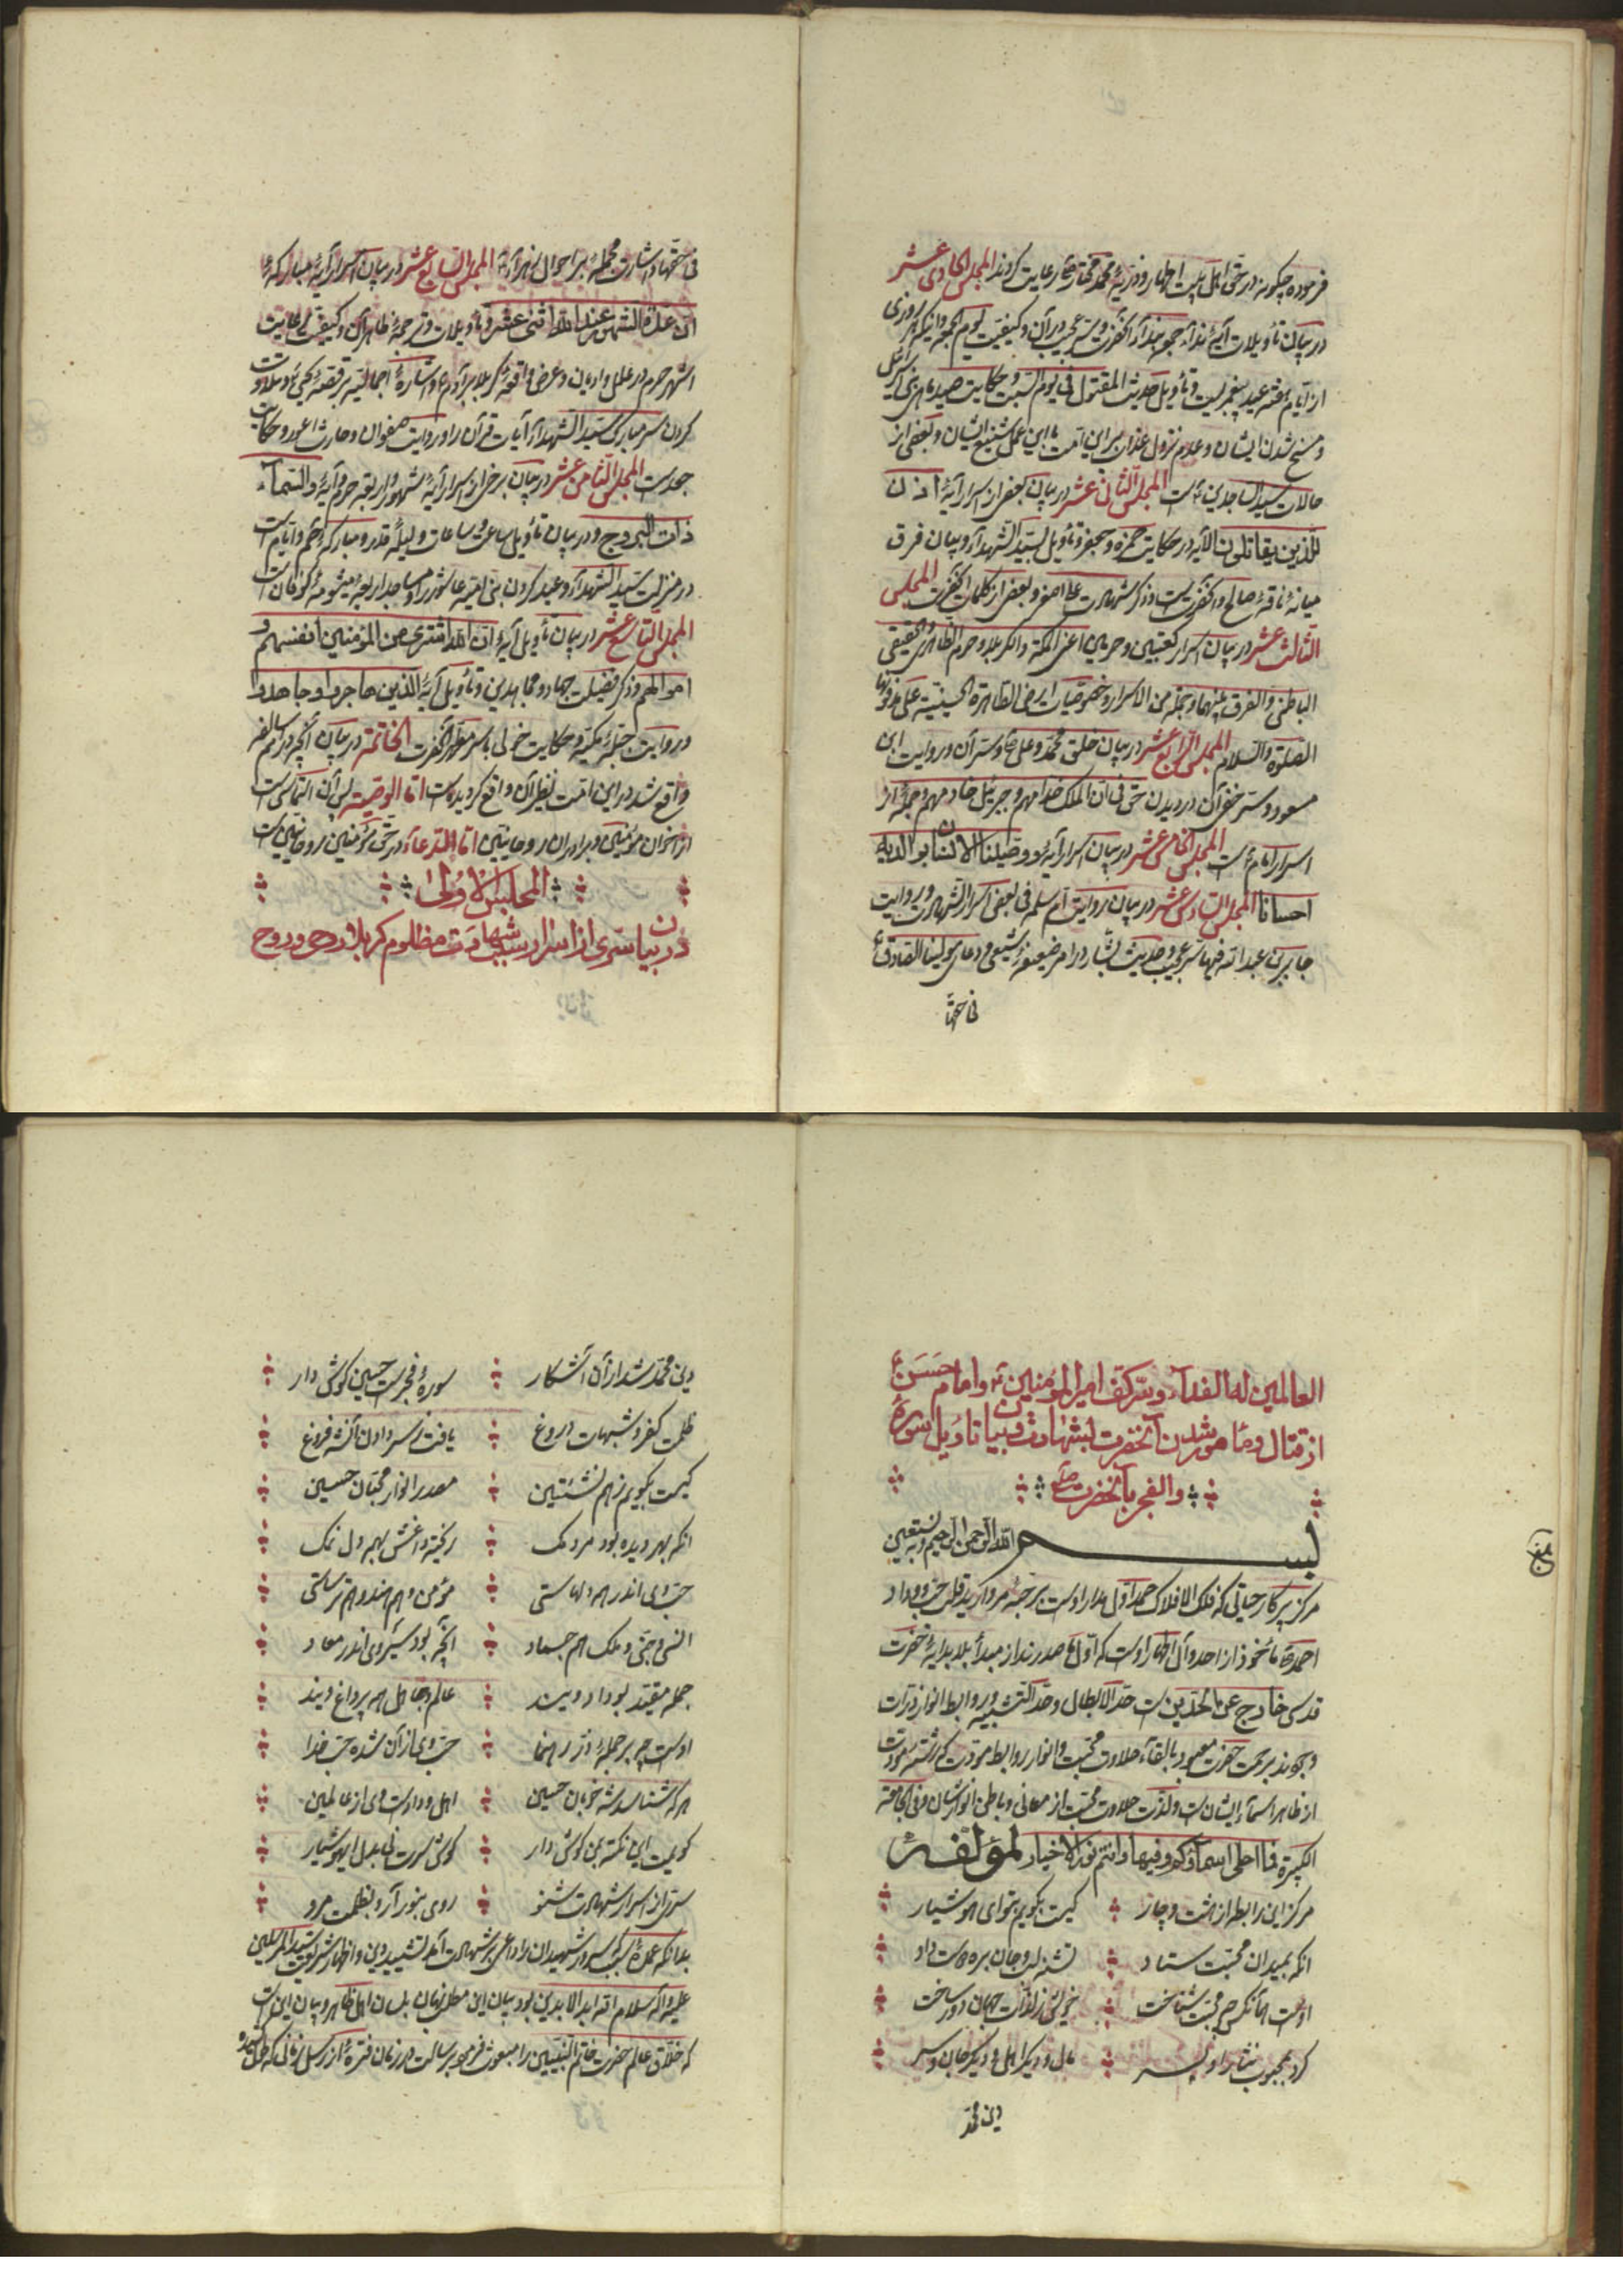 فرموده چگونه در حق اهل بیت اطهار و ذریهٔ محمد مختار رعایت کردند المجلس الحادی عشر
در بیان تأویلات آیهٔ نداء جمعه آنحضرت و سر عجیب در آن و کیفیت یوم الجمعه و اینکه روزی
از ایام هفته عید پیغمبریست و تأویل حدیث المقتول فی یوم السبت و حکایت صید ماهی بنی اسرائیل
و مسخ شدن ایشان و عدم نزول عذاب بر این امت با این عمل شنیع ایشان و بعضی از
حالات سید الساجدین است المجلس الثانی عشر در بیان بعضی از اسرار آیهٔ اذن
للذین یقاتلون الآیه در حکایت حمزه و جعفر و تأویل بسید الشهدآء و بیان فرق
میانهٔ ناقهٔ صالح و آنحضرتست و ذکر شهادت علی اصغر و بعضی از کلمات آنحضرت المجلس
الثالث عشر در بیان اسرار کعبتین و حرمین اعنی المکة والکربلا و حرم الظاهری والحقیقی
الباطنی والفرق بینهما و جملة من الاسرار و خصوصیات ارض الطاهرة الحسینیة علی مدفونها
الصلوة والسلام المجلس الرابع عشر در بیان خلق محمد و علی و سر آن و روایت ابن
مسعود و سر خفی آن در دیدن حق فی ان الملک خدامهم و جبرئیل خادمهم و جمله از
اسرار امام است المجلس الخامس عشر در بیان اسرار آیهٔ و وصینا الانسان بوالدیه
احسانا المجلس السادس عشر در بیان روایت ام سلمه فی بعض اسرار الشهادت و روایت
جابر بن عبدالله فیها سر عجیب و حدیث بشار در امر ضعیفهٔ شیعی و دعای مولینا الصادق
فی حقها
فی حقها و اشارت مجمله بر احوال زهرآء المجلس السابع عشر در بیان اسرار آیهٔ مبارکه
ان عدة الشهور عند الله اثنی عشر و تأویلات و ترجمهٔ ظاهر آن و کیفیت رعایت
اشهر حرم در ملل و ادیان و عرض واقعهٔ کربلا بر آدم و اشارهٔ اجمالیه بر قصهٔ یحیی و تلاوت
کردن سر مبارک سید الشهدآء آیات قرآن را و روایت صفوان و حارث اعور و حکایت
جدست المجلس الثامن عشر در بیان برخی از اسرار آیهٔ شهور و اربعه حرم و آیهٔ والسمآء
ذات البروج و در بیان تأویل ساعی و ساعات و لیلهٔ قدر و مبارکه و حم و ایام است
در منزلت سید الشهدآء و عید کردن بنی امیه عاشورا و مساجد اربعهٔ میشومهٔ کوفان است
المجلس التاسع عشر در بیان تأویل آیهٔ ان الله اشتری من المؤمنین انفسهم و
اموالهم و ذکر فضیلت جهاد و مجاهدین و تأویل آیهٔ الذین هاجروا و جاهدوا
و روایت جبل مکیه و حکایت خولی با سر مطهر آنحضرت الخاتمة در بیان آنچه در امم سالفه
واقع شد در این امت نظیر آن واقع گردیده است اما الوصیة پس آن التماس است
از اخوان مؤمنین و برادران روحانیین اما الدعآء در حق مؤمنین روحانیین است
المجلس الاولی
در بیان سری از اسرار سبب شهادت مظلوم کربلا روحی و روح
العالمین له الفدآء و سر کف امیر المؤمنین و امام حسن
از قتال و مأمور شدن آنحضرت بشهادت و بیان تاویل سوره
والفجر بآنحضرت
بسم الله الرحمن الرحیم و به نستعین
مرکز پرکار حیاتی که فلک الافلاک حمد اول مدار اوست بر جبههٔ مروارید قلب حب وداد
احمد مأخوذ از احد و آل اطهار اوست که اول ما صدرند از مبدأ بلا بدایهٔ حضرت
قدسی خارج عن الحدین است حد الابطال و حد التشبیه و روابط انوار ذرات
وجودند برحمت حضرت معبود بالقآء حلاوت محبت و انوار روابط مودت که رشته سعودت
از ظاهر اسمآء ایشان است و لذت حلاوت محبت از معانی و باطن انوارشان و فی الجامعة
الکبیرة فما احلی اسمآئکم و فیها و انتم نور الاخیار لمؤلفه
مرکز این رابطه از هشت و چار ؞ کیست بگویم بتو ای هوشیار
انکه بمیدان محبت ستاد ؞ تشنه لب و جان بره دوست داد
اوست همانکس که محبت شناخت ؞ خویش ز لذات جهان دور ساخت
کرد بمحبوب نثار او پسر ؞ مال و دیگر اهل و دیگر جان و سر
دین محمد
دین محمد شد از آن آشکار ؞ سورهٔ فجر است حسین گوش دار
ظلمت کفر و شبهات دروغ ؞ یافت ز سر دادن آنشه فروغ
کیست بگویم زهم نشئتین ؞ مصدر انوار محبان حسین
انکه بهر دیده بود مردمک ؞ ریخته داغش بهمه دل نمک
حب وی اندر همه دلهاستی ؞ مؤمن و هم هند و هم ترساستی
انس و جن و ملک هم جماد ؞ آنچه بود سیر وی اندر معاد
جمله مقید بوداد ویند ؞ عالم و جاهل همه پر داغ ویند
اوست چو بر جملهٔ ذر رهنما ؞ حب وی از آن شده حب خدا
هر که شناسد شه خوبان حسین ؞ اهل ودادست وی از عالمین
گویمت این نکته بمن گوش دار ؞ گوش سرت نی بدل ای هوشیار
سری از اسرار شهادت شنو ؞ روی بنور آر و بظلمت مرو
بدانکه عمدهٔ سبب سرور شهیدان را داعی بر شهادت آمد تشیید دین و اظهار شریعت سید المرسلین
علیه و آله سلام الله ابد الابدین بود بیان این مطلب بلسان اهل ظاهر و بیان این است
که خلاق عالم حضرت خاتم النبیین را مبعوث فرمود برسالت در زمان فترهٔ از رسل زمانی که